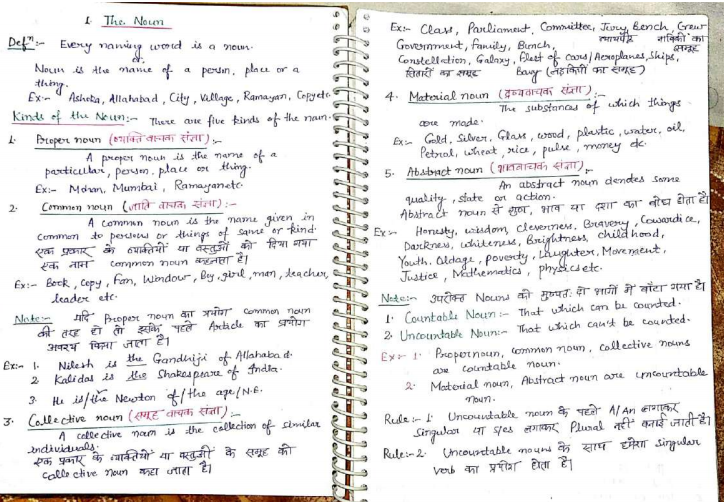 1. The Noun
Defⁿ:- Every naming word is a noun.
or,
Noun is the name of a person, place or a
thing.
Ex:- Ashoka, Allahabad, City, Village, Ramayan, Copy etc.
Kinds of the Noun:- There are five kinds of the noun.
1. Proper noun (व्यक्ति वाचक संज्ञा):-
A proper noun is the name of a
particular, person, place or thing.
Ex:- Mohan, Mumbai, Ramayan etc.
2. Common noun (जाति वाचक संज्ञा):-
A common noun is the name given in
common to persons or things of same or kind.
एक प्रकार के व्यक्तियों या वस्तुओं को दिया गया
एक नाम common noun कहलाता है।
Ex:- Book, Copy, Fan, Window, Boy, girl, man, teacher,
leader etc.
Note:- यदि Proper noun का प्रयोग common noun
की तरह हो तो इसके पहले Article का प्रयोग
अवश्य किया जाता है।
Ex:- 1. Nilesh is the Gandhiji of Allahabad.
2 Kalidas is the Shakespeare of India.
3. He is/the Newton of/the age/N.E.
3. Collective noun (समूह वाचक संज्ञा):-
A collective noun is the collection of similar
individuals.
एक प्रकार के व्यक्तियों या वस्तुओं के समूह को
collective noun कहा जाता है।
Ex:- Class, Parliament, Committee, Jury, Bench, Crew
न्यायपीठ नाविकों का
Government, Family, Bunch, समूह
Constellation, Galaxy, Fleet of cars/Aeroplanes, Ships,
सितारों का समूह Bevy (लड़कियों का समूह)
4. Material noun (द्रव्यवाचक संज्ञा):-
The substances of which things
are made.
Ex:- Gold, Silver, Glass, wood, plastic, water, oil,
Petrol, wheat, rice, pulse, money etc.
5. Abstract noun (भाववाचक संज्ञा)
An abstract noun denotes some
quality, state or action.
Abstract noun से गुण, भाव या दशा का बोध होता है।
Ex:- Honesty, wisdom, cleverness, Bravery, Cowardice,
Darkness, whiteness, Brightness, childhood,
Youth. Oldage, poverty, Laughter, Movement,
Justice, Mathematics, physics etc.
Note:- उपरोक्त Nouns को मुख्यतः दो भागों में बाँटा गया है।
1. Countable Noun:- That which can be counted.
2. Uncountable Noun:- That which can't be counted.
Ex:- 1. Proper noun, common noun, collective nouns
are countable noun.
2. Material noun, Abstract noun are uncountable
noun.
Rule:- 1. Uncountable noun के पहले A/An लगाकर
Singular या s/es लगाकर Plural नहीं बनाई जाती है।
Rule:- 2. Uncountable nouns के साथ हमेशा singular
verb का प्रयोग होता है।